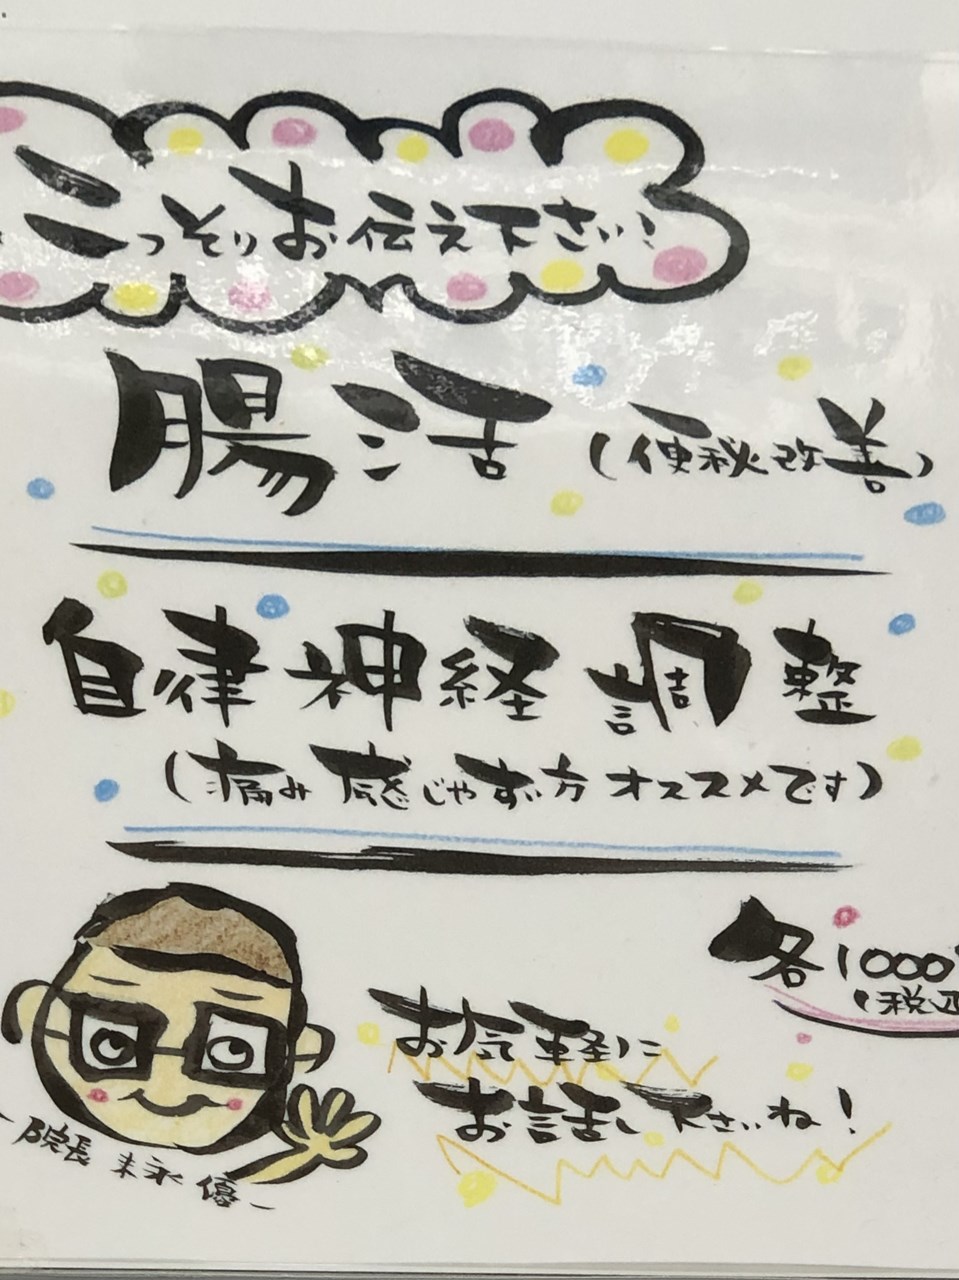 こっそりお伝え下さい!
腸活(便秘改善)
自律神経調整
(痛み感じやすい方オススメです)
各1000
(税込
お気軽に
お話し下さいね!
院長 末永 優